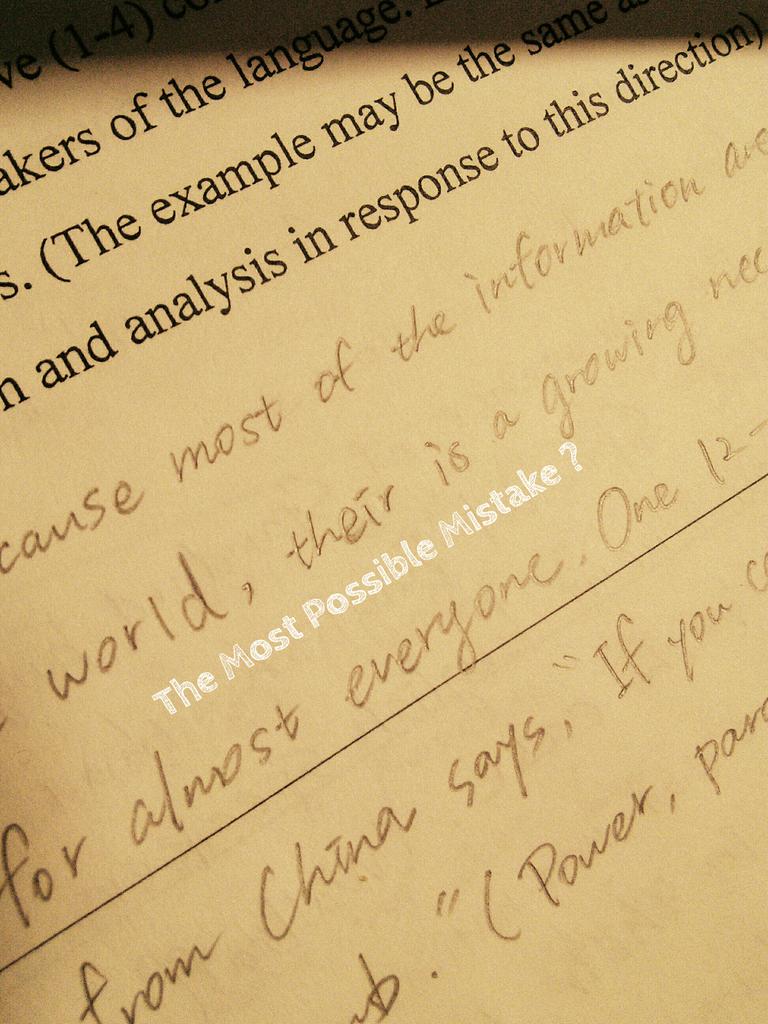 (1-4)
akers of the language.
s. (The example may be the same as
n and analysis in response to this direction)
cause most of the information are
world, their is a growing nee
The Most Possible Mistake ?
for almost everyone. One 12-
from China says, "If you c
." (Power, para